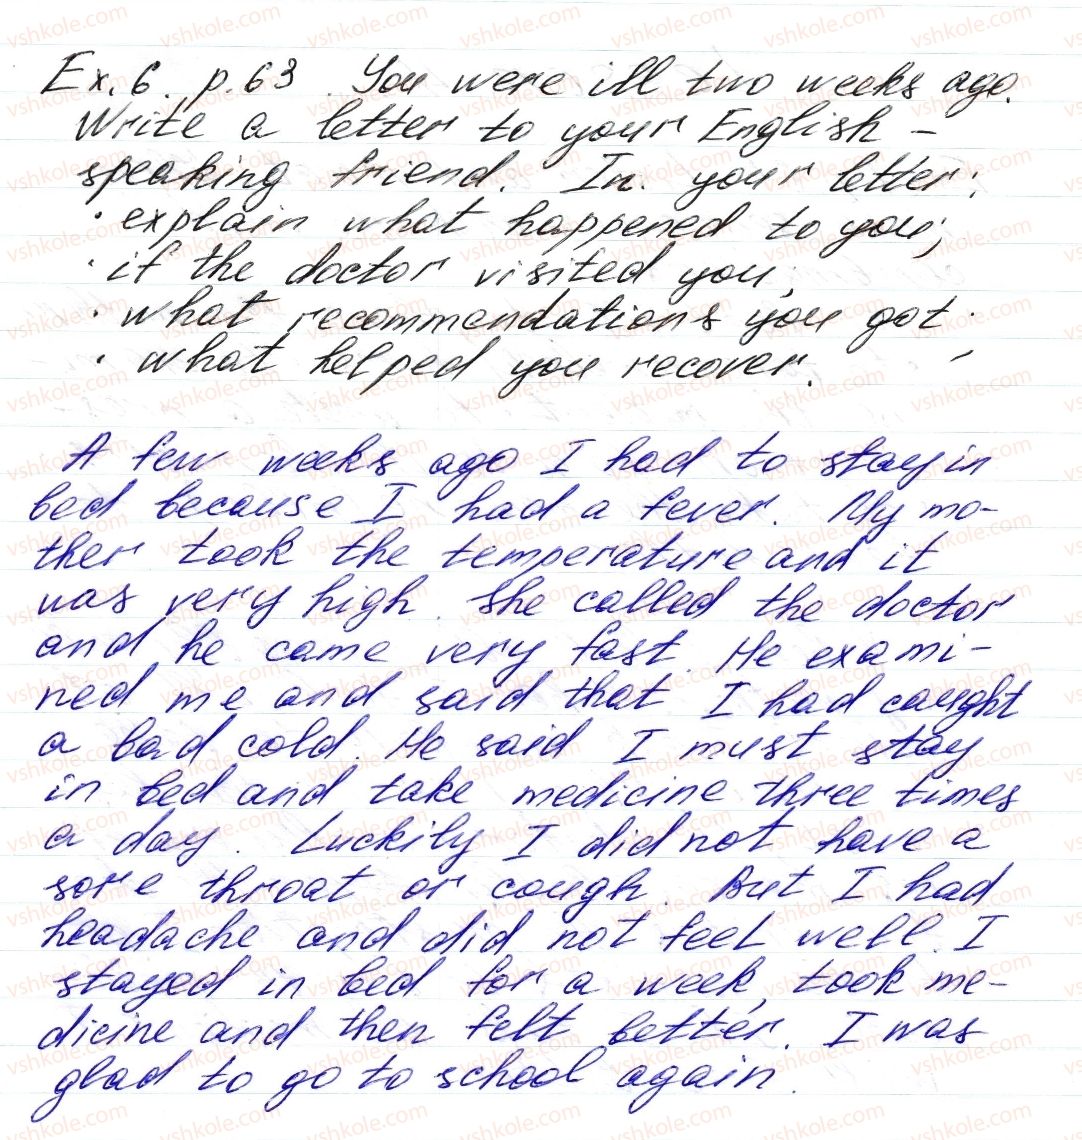 Ex. 6. p. 63. You were ill two weeks ago.
Write a letter to your English -
speaking friend. In your letter:
· explain what happened to you;
· if the doctor visited you;
· what recommendations you got.
· what helped you recover.
A few weeks ago I had to stay in
bed because I had a fever. My mo-
ther took the temperature and it
was very high. She called the doctor
and he came very fast. He exami-
ned me and said that I had caught
a bad cold. He said I must stay
in bed and take medicine three times
a day. Luckily I did not have a
sore throat or cough. But I had
headache and did not feel well. I
stayed in bed for a week, took me-
dicine and then felt better. I was
glad to go to school again.